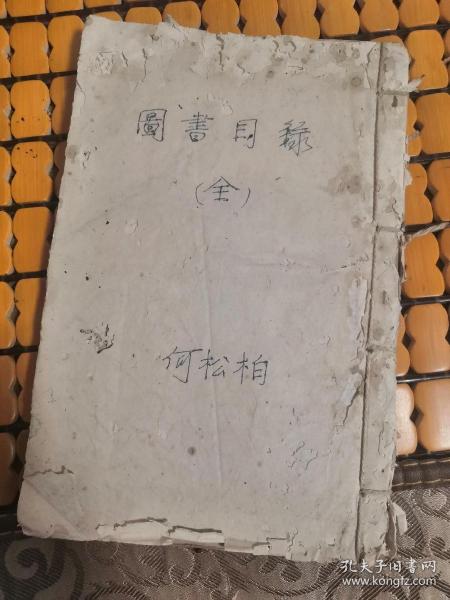 圖書目録
(全)
何松柏
孔夫子旧书网
www.kongfz.com